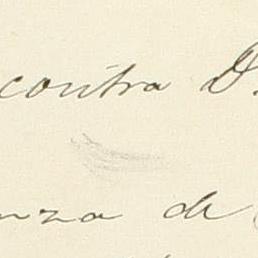 contra D
nza de